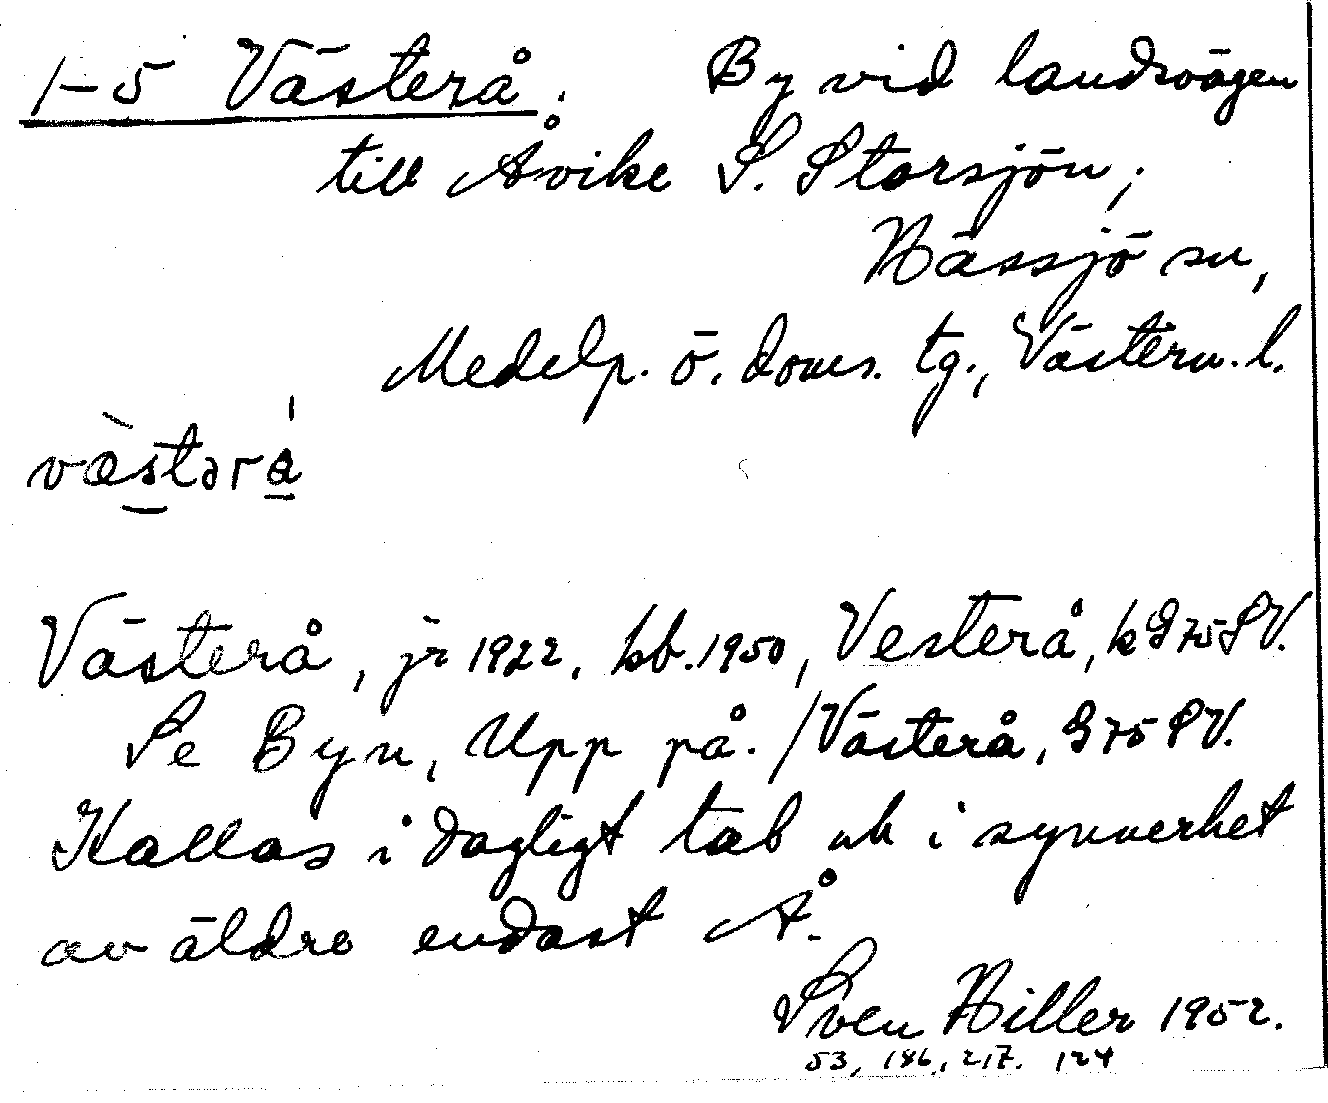 1-5 Västerå. By vid landsvägen
till Åvike S. Storsjön,
Hässjö sn,
Medelp. ö. doms. tg., Västern. l.
väst​ər​å
Västerå, jr 1922, kb. 1950, Vesterå, k G 75 SV.
Se Byn, Upp på. / Västerå, G 75 SV.
Kallas i dagligt tal och i synnerhet
av äldre endast Å.
Sven Hiller 1952.
53, 186, 217. 124